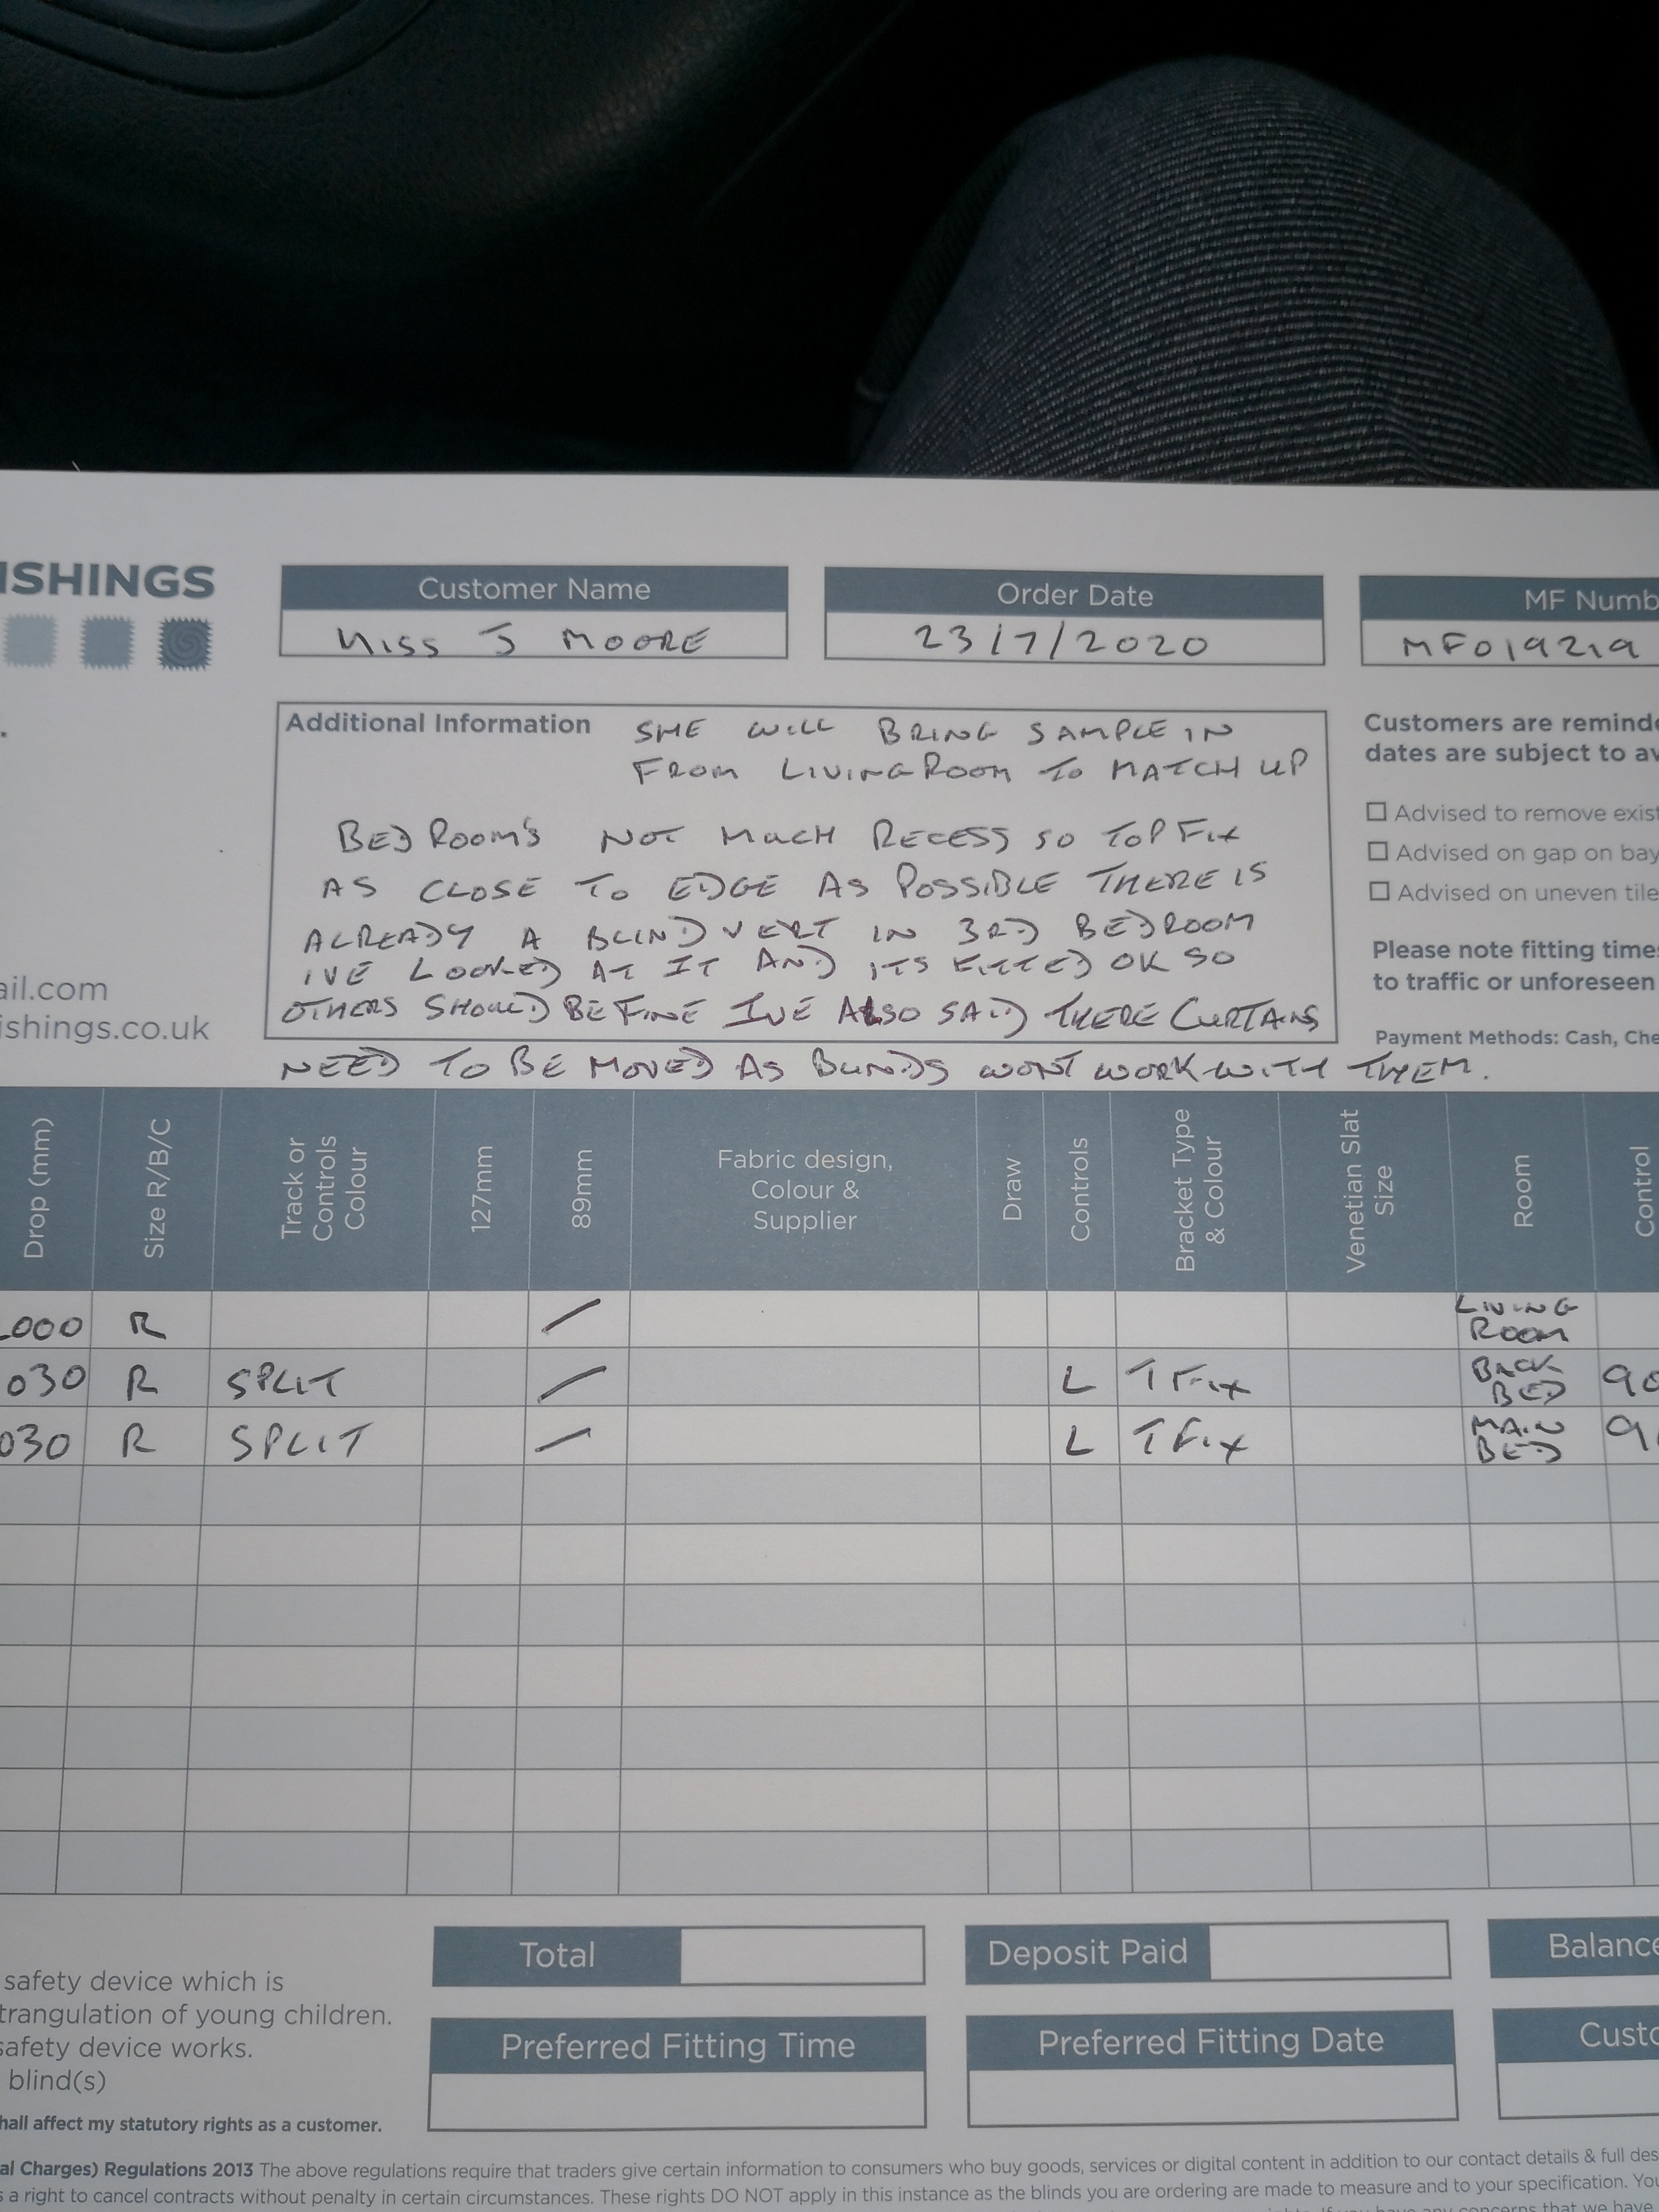 ISHINGS
Customer Name
Order Date
MF Numb
Miss J MOORE
23/7/2020
MF019219
Additional Information
SHE WILL BRING SAMPLE IN
FROM LIVING ROOM TO MATCH UP
BEDROOM'S NOT MUCH RECESS SO TOP FIX
AS CLOSE TO EDGE AS POSSIBLE THERE IS
ALREADY A BLIND VERT IN 3RD BEDROOM
IVE LOOKED AT IT AND ITS FITTED OK SO
OTHERS SHOULD BE FINE IVE ALSO SAID THERE CURTAINS
NEED TO BE MOVED AS BLINDS WONT WORK WITH THEM.
Customers are reminde
dates are subject to av
Advised to remove exist
Advised on gap on bay
Advised on uneven tile
Please note fitting time
to traffic or unforeseen
Payment Methods: Cash, Che
ail.com
ishings.co.uk
Drop (mm)
Size R/B/C
Track or
Controls
Colour
127mm
89mm
Fabric design,
Colour &
Supplier
Draw
Controls
Bracket Type
& Colour
Venetian Slat
Size
Room
Control
000 R / LIVING ROOM
030 R SPLIT / L T Fix BACK BED 90
030 R SPLIT / L T Fix MAIN BED 9
Total
Deposit Paid
Balance
safety device which is
trangulation of young children.
safety device works.
blind(s)
hall affect my statutory rights as a customer.
Preferred Fitting Time
Preferred Fitting Date
Custo
al Charges) Regulations 2013 The above regulations require that traders give certain information to consumers who buy goods, services or digital content in addition to our contact details & full des
s a right to cancel contracts without penalty in certain circumstances. These rights DO NOT apply in this instance as the blinds you are ordering are made to measure and to your specification. You